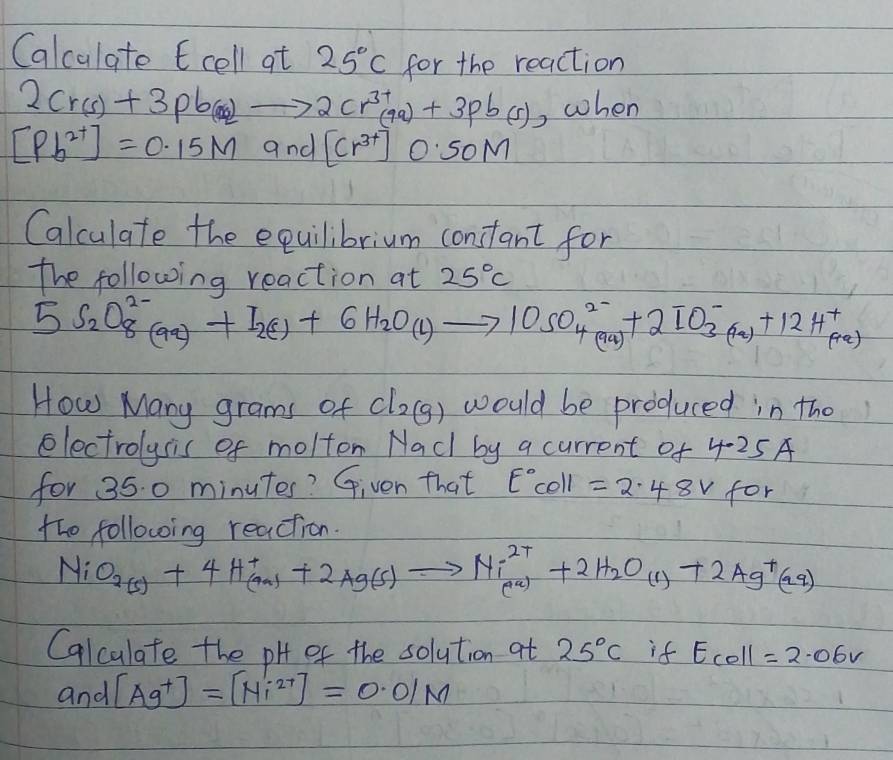 Calculate Ecell at 25°C for the reaction
2Cr(s) + 3pb(aq) → 2Cr³⁺(aq) + 3pb(s), when
[Pb²⁺] = 0.15M and [Cr³⁺] 0.50M
Calculate the equilibrium constant for
the following reaction at 25°C
5 S₂O₈²⁻(aq) + I₂(s) + 6H₂O(l) → 10SO₄²⁻(aq) + 2IO₃⁻(aq) + 12H⁺(aq)
How Many grams of Cl₂(g) would be produced in the
electrolysis of molten Nacl by a current of 4.25A
for 35.0 minutes? Given that E°cell = 2.48V for
the following reaction.
NiO₂(s) + 4H⁺(aq) + 2Ag(s) → Ni²⁺(aq) + 2H₂O(l) + 2Ag⁺(aq)
Calculate the pH of the solution at 25°C if Ecell = 2.06v
and [Ag⁺] = [Ni²⁺] = 0.01M